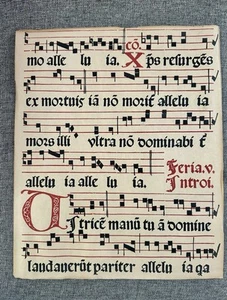 cō.
mo alle lu ia. Xp̄s resurgēs
ex mortuis iā nō moritͬ allelu ia
mors illi vltra nō dominabi t̄
allelu ia alle lu ia. Feria.v.
Introi.
Uictricē manū tu ā domine
laudauerūt pariter allelu ia qa